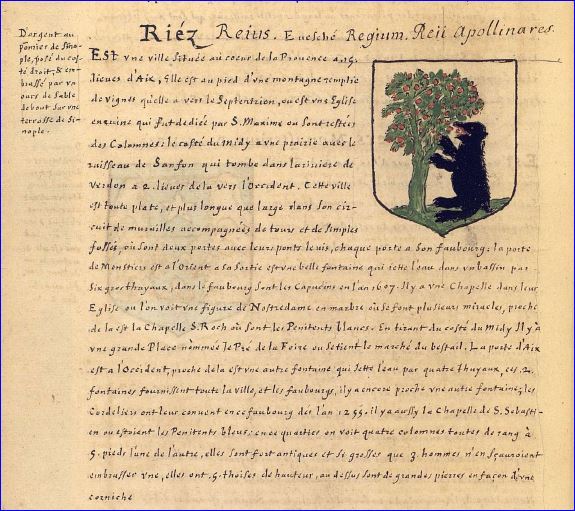 Riéz Reius. Euesché Regium. Reii Apollinares.
D'argent au
pomier de sino-
ple, posé du cos-
té droit, & em-
brassé par vn
ours de sable
debout sur vne
terrasse de si-
nople.
Est vne ville située au coeur de la Prouence a 15.
lieues d'Aix, Elle est au pied d'vne montagne remplie
de vignes qu'elle a vers le Septentrion, ou est vne Eglise
en ruine qui fut dediée par S. Maxime ou sont restées
des Colomnes: le costé du midy a vne prairie auec le
ruisseau de Sanson qui tombe dans la riuiere de
Verdon a 2. lieues de la vers l'Occident. Cette ville
est toute plate, et plus longue que large dans son cir-
cuit de murailles accompagnées de tours et de simples
fossés, où sont deux portes avec leurs ponts leuis, chaque porte a son faubourg: la porte
de Monstiers est a l'Orient a sa sortie est vne belle fontaine qui iette l'eau dans vn bassin par
six gros thuyaux, dans le faubourg sont les Capucins en l'an 1607. Il y a vne Chapelle dans leur
Eglise ou l'on voit vne figure de Nostredame en marbre où se font plusieurs miracles, proche
de la est la Chapelle S. Roch où sont les Penitents blancs. En tirant du costé du Midy Il y a
vne grande Place nommée le Pré de la Foire ou se tient le marché du bestail. La porte d'Aix
est a l'Occident, proche de la est vne autre fontaine qui iette l'eau par quatre thuyaux, ces 2.
fontaines fournissent toute la ville, et les faubourgs, il y a encore proche vne autre fontaine; les
Cordeliers ont leur conuent en ce faubourg dés l'an 1255. il y a aussy la Chapelle de S. Sebasti-
en ou estoient les Penitents bleus: en ce quartier on voit quatre colomnes toutes de rang à
5. pieds l'vne de l'autre, elles sont fort antiques et si grosses que 3. hommes n'en sçauroient
embrasser vne, elles ont 5. thoises de hauteur, au dessus sont de grandes pierres en façon d'vne
corniche